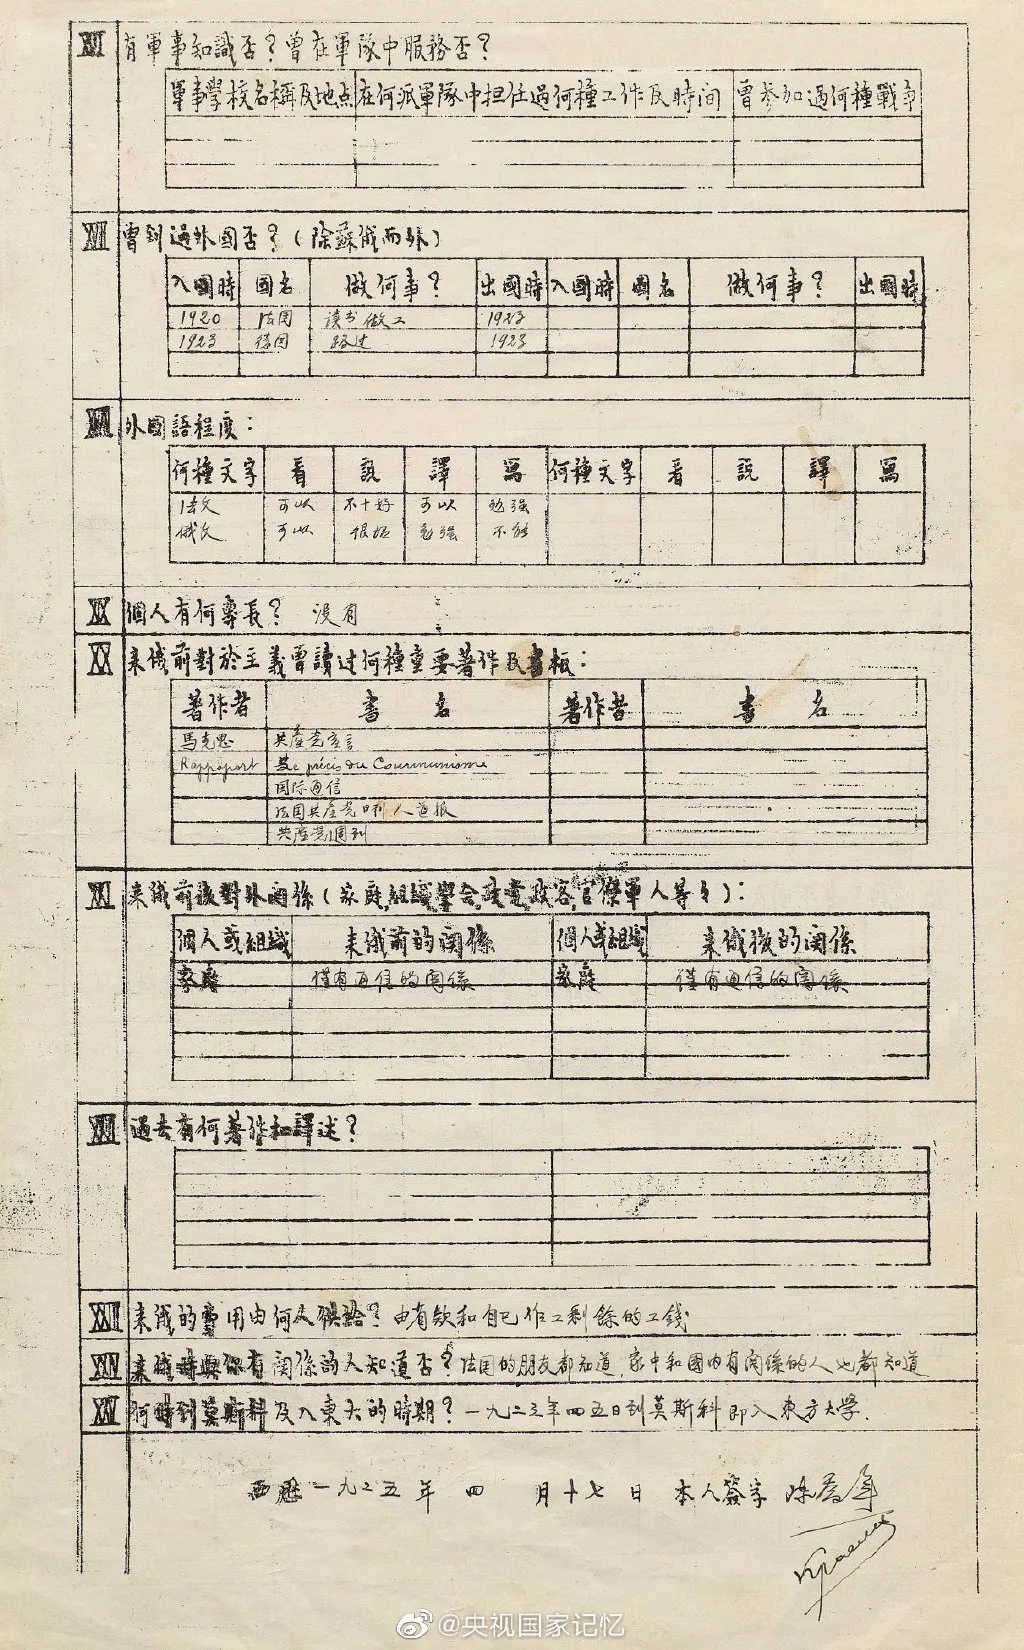 有軍事知識否？曾在軍隊中服務否？
軍事學校名稱及地点 在何派軍隊中担任過何種工作及時間 曾参加過何種戰爭
曾到過外國否？（除蘇俄而外）
入國時 國名 做何事？ 出國時 入國時 國名 做何事？ 出國時
1920 法国 读书做工 1923
1923 德国 路过 1923
外國語程度：
何種文字 看 説 譯 寫 何種文字 看 説 譯 寫
法文 可以 不十好 可以 勉强
俄文 可以 很坏 勉强 不能
XIX 個人有何專長？ 没有
XX 来俄前對於主義曾讀过何種重要著作及書板：
著作者 書名 著作者 書名
馬克思 共産党宣言
Rappoport précis du Communisme
国际通信
法国共産党 人道报
共産党週刊
XXI 来俄前後對外関係（家庭,組織,學会,政黨,政客,官僚軍人等々）：
個人或組織 来俄前的関係 個人或組織 来俄後的関係
家庭 僅有通信的関係 家庭 僅有通信的関係
XXII 過去有何著作和譯述？
XXIII 来俄的費用由何人供給？ 由有欵和自己作工剩餘的工錢
XXIV 来俄時與你有関係的人知道否？ 法国的朋友都知道,家中和國内有関係的人也都知道
XXV 何時到莫斯科及入東大的時期？ 一九二三年四五日到莫斯科即入東方大学.
西歷一九二五年 四 月十七日 本人簽字 陈喬年
@央视国家记忆